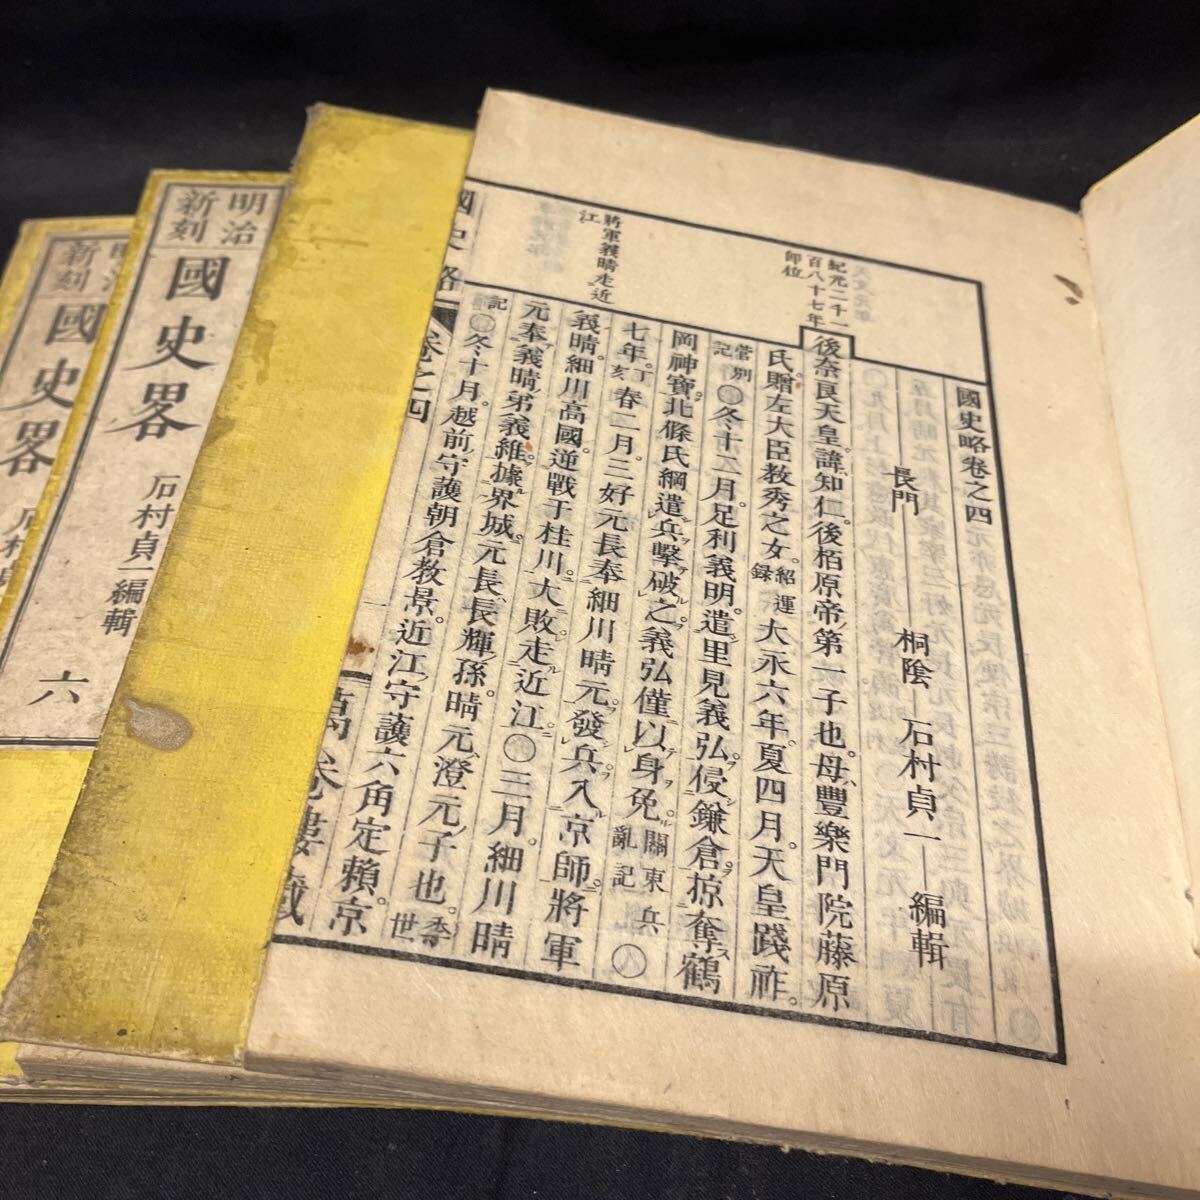 國史略卷之四
長門 桐陰 石村貞一 編輯
紀元二千一
百八十七年
卽位
後奈良天皇。諱知仁。後栢原帝第一子也。母豐樂門院藤原
氏。贈左大臣敎秀之女。紹運錄大永六年。夏四月。天皇踐祚。
冬十一月。足利義明。遣里見義弘侵鎌倉。掠奪鶴
岡神寶。北條氏綱遣兵擊破之。義弘僅以身免。關東兵亂記
七年。丁亥春二月。三好元長奉細川晴元。發兵入京師。將軍
將軍義晴走近
江
義晴。細川高國。逆戰于桂川。大敗走近江。〇三月。細川晴
元奉義晴弟義維據界城。元長。長輝孫。晴元。澄元子也。季世
記
冬十月。越前守護朝倉敎景。近江守護六角定賴。京
國史略
卷之四
萬卷樓藏
明治
新刻
國史畧
石村貞一編輯
六
明治
新刻
國史畧
石村